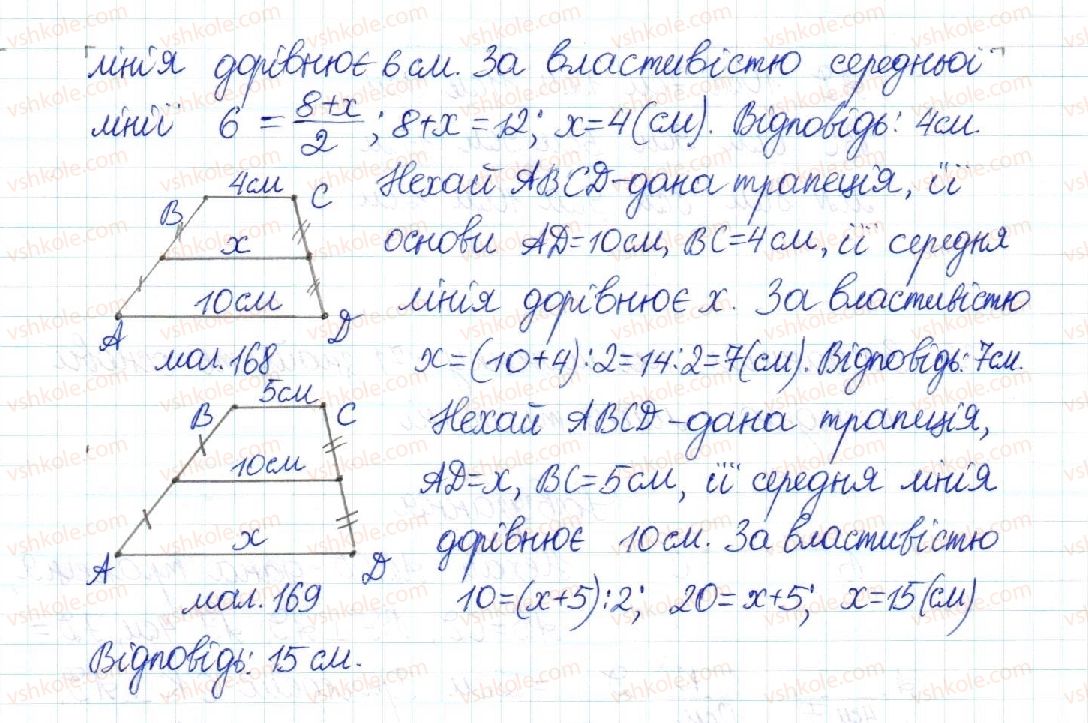 лінія дорівнює 6 см. За властивістю середньої
лінії 6 = (8+x)/2; 8+x=12; x=4(см). Відповідь: 4см.
4см
B C
x
10см
A D
мал. 168
Нехай ABCD-дана трапеція, її
основи AD=10см, BC=4см, її середня
лінія дорівнює x. За властивістю
x=(10+4):2=14:2=7(см). Відповідь: 7см.
5см
B C
10см
x
A D
мал. 169
Нехай ABCD-дана трапеція,
AD=x, BC=5см, її середня лінія
дорівнює 10см. За властивістю
10=(x+5):2; 20=x+5; x=15(см)
Відповідь: 15см.
vshkole.com